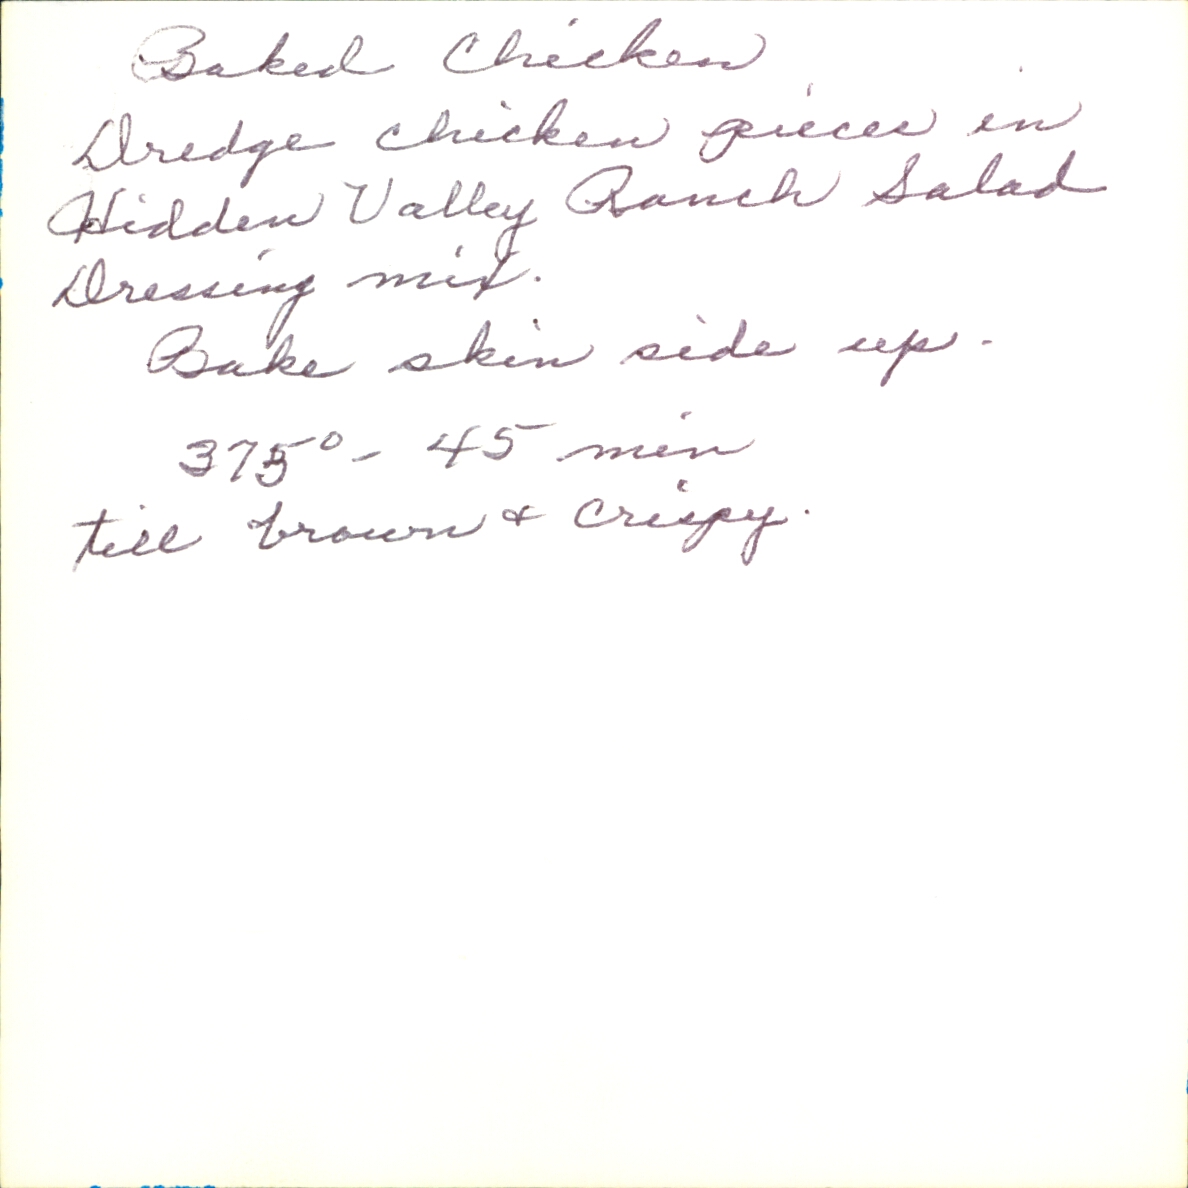 Baked Chicken
Dredge chicken pieces in
Hidden Valley Ranch Salad
Dressing mix.
Bake skin side up.
375° - 45 min
till brown & crispy.